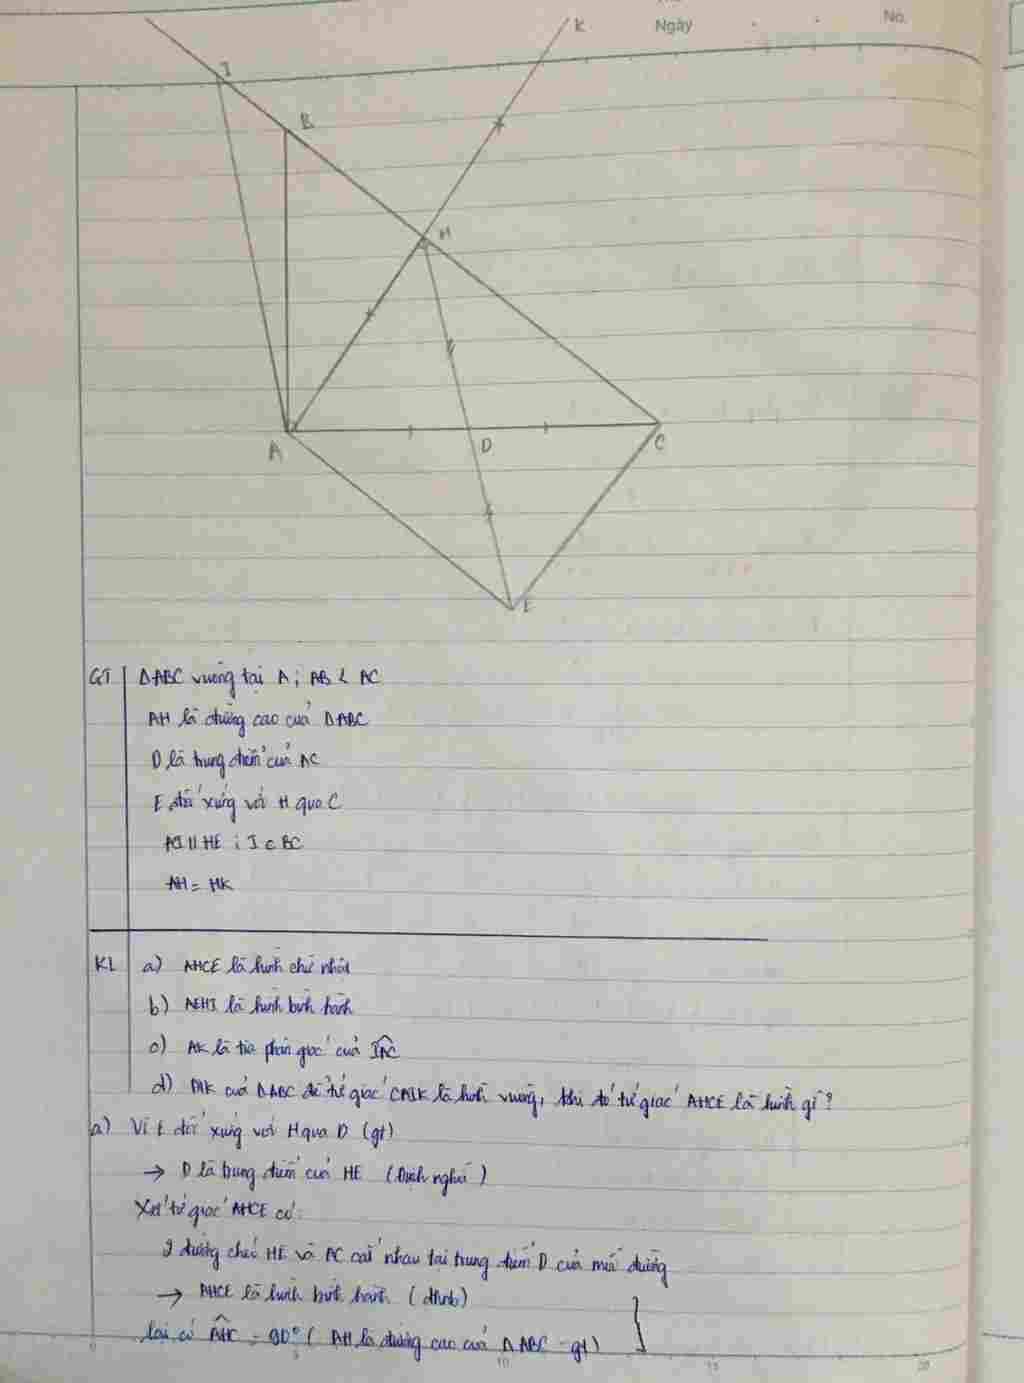 Ngày
No.
K
I
B
H
A
D
C
E
GT ΔABC vuông tại A ; AB < AC
AH là đường cao của ΔABC
D là trung điểm của AC
E đối xứng với H qua C
AI // HE ; I ∈ BC
AH = HK
KL a) AHCE là hình chữ nhật
b) AEHI là hình bình hành
c) AK là tia phân giác của IAC
d) ĐK của ΔABC để tứ giác CAIK là hình vuông, khi đó tứ giác AHCE là hình gì?
a) Vì E đối xứng với H qua D (gt)
→ D là trung điểm của HE (Định nghĩa)
Xét tứ giác AHCE có:
2 đường chéo HE và AC cắt nhau tại trung điểm D của mỗi đường
→ AHCE là hình bình hành (dhnb)
lại có AHC = 90° ( AH là đường cao của ΔABC - gt)
0 5 10 15 20